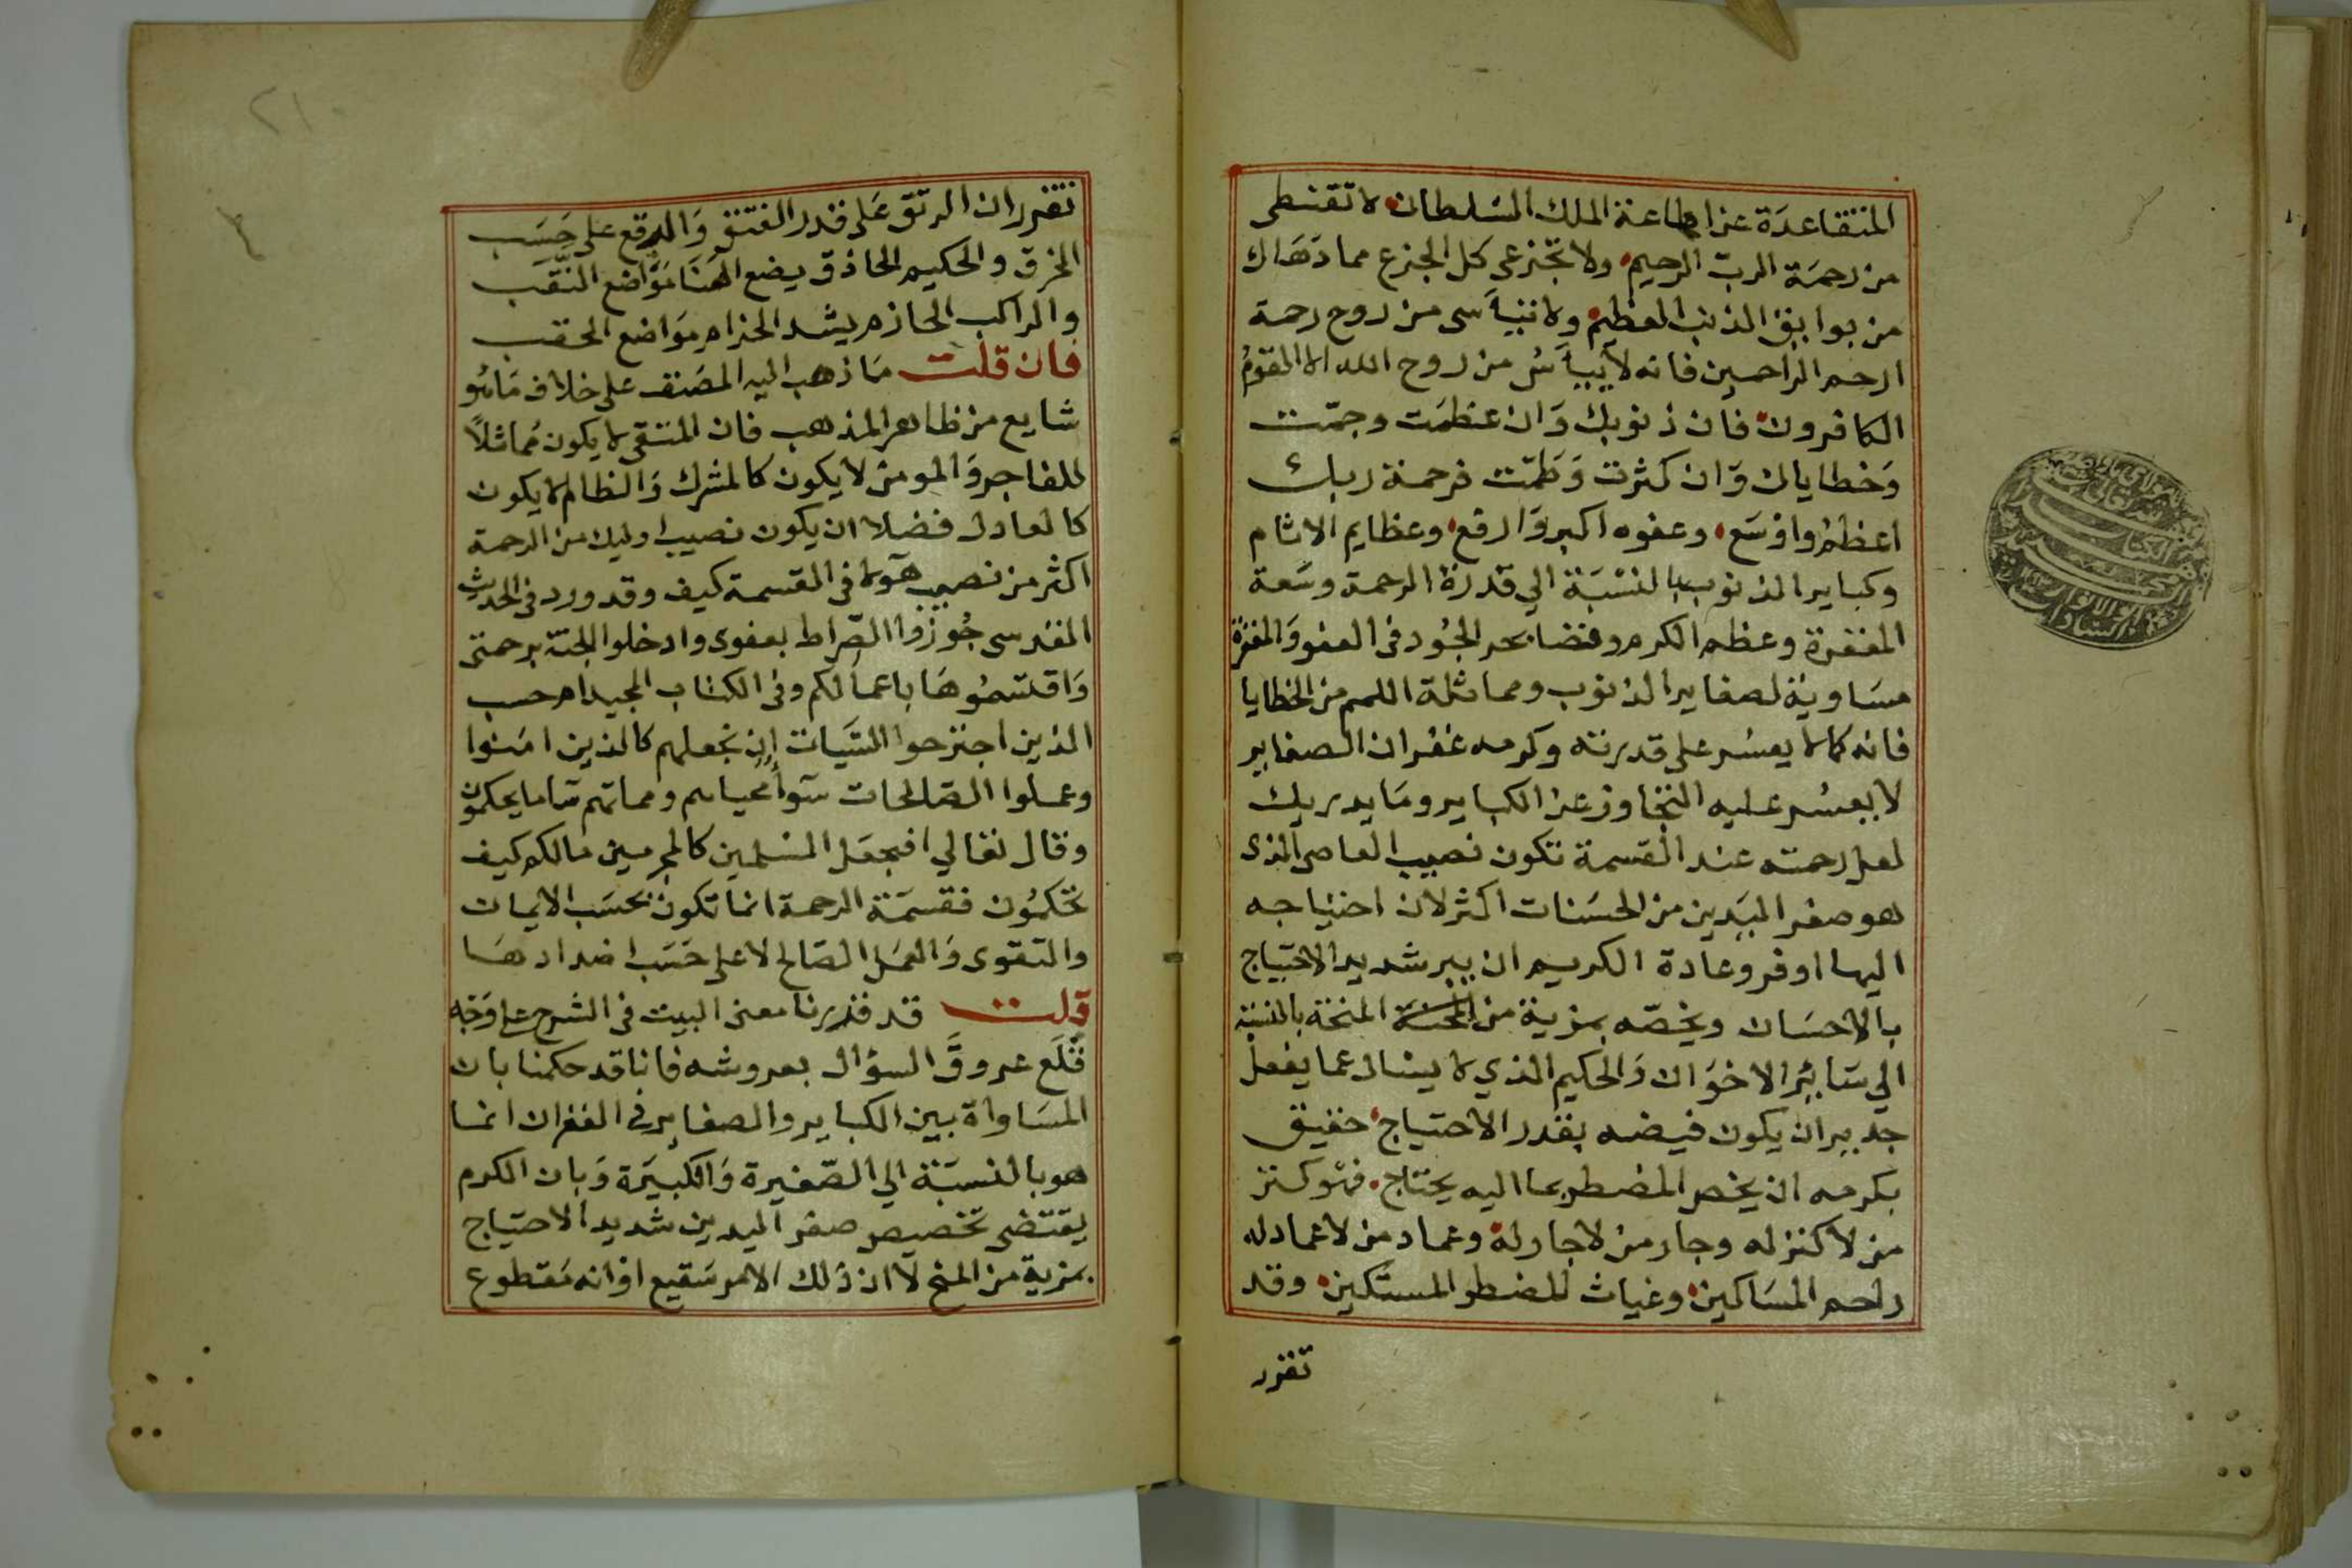 المتقاعدة عن اطاعة الملك السلطان لا تقنطى
من رحمة الرب الرحيم ولا تجزعى كل الجزع مما دهاك
من بوايق الذنب العظيم ولا تيأسى من روح رحمة
ارحم الراحمين فانه لا ييأس من روح الله الا القوم
الكافرون فان ذنوبك وان عظمت وجمّت
وخطاياك وان كثرت وطمّت فرحمة ربك
اعظم واوسع وعفوه اكبر وارفع وعظايم الاثام
وكباير الذنوب بالنسبة الي قدرة الرحمة وسعة
المغفرة وعظم الكرم وفضا بحر الجود فى العفو والمغفرة
مساوية لصغاير الذنوب ومماثلة اللمم من الخطايا
فانه كما لا يعسر على قدرته وكرمه غفران الصغاير
لا يعسر عليه التجاوز عن الكباير وما يدريك
لعل رحمته عند القسمة تكون نصيب العاصى الذى
هو صفر اليدين من الحسنات اكثر لان احتياجه
اليها اوفر وعادة الكريم ان يبر شديد الاحتياج
بالاحسان ويخصّه بمزية من المنحة بالنسبة
الي سائر الاخوان والحكيم الذي لا يسال عما يفعل
جدير ان يكون فيضه بقدر الاحتياج حقيق
بكرمه ان يخص المضطر بما اليه يحتاج فهو كنز
من لا كنز له وجار من لا جار له وعماد من لا عماد له
راحم المساكين وغياث المضطر المستكين وقد
تقرر
٢١٠
تقرر ان الرتق على قدر الفتق والرقع على حسب
الخرق والحكيم الحاذق يضع الهنا مواضع النقب
والراكب الحازم يشد الحزام مواضع الحقب
فان قلت ما ذهب اليه المصنف على خلاف ما هو
شايع من ظاهر المذهب فان المتقى لا يكون مماثلاً
للفاجر والمومن لا يكون كالمشرك والظالم لا يكون
كالعادل فضلا ان يكون نصيب اوليك من الرحمة
اكثر من نصيب هولا فى القسمة كيف وقد ورد فى الحديث
القدسى جوزوا الصّراط بعفوى وادخلوا الجنة برحمتى
واقتسموها باعمالكم وفى الكتاب المجيد ام حسب
الذين اجترحوا السّيات ان نجعلهم كالذين امنوا
وعملوا الصّالحات سوآء محياهم ومماتهم سا ما يحكمون
وقال تعالي افنجعل المسلمين كالمجرمين مالكم كيف
تحكمون فقسمة الرحمة انما تكون بحسب الايمان
والتقوى والعمل الصّالح لا على حسب اضدادها
قلت قد قررنا معنى البيت فى الشرح على وجه
قلع عروق السؤال بعروشه فانا قد حكمنا بان
المساواة بين الكباير والصغاير فى الغفران انما
هو بالنسبة الي الصّغيرة والكبيرة وبان الكرم
يقتضى تخصيص صفر اليدين شديد الاحتياج
بمزية من المنح لا ان ذلك الامر سَقيع او انه مقطوع